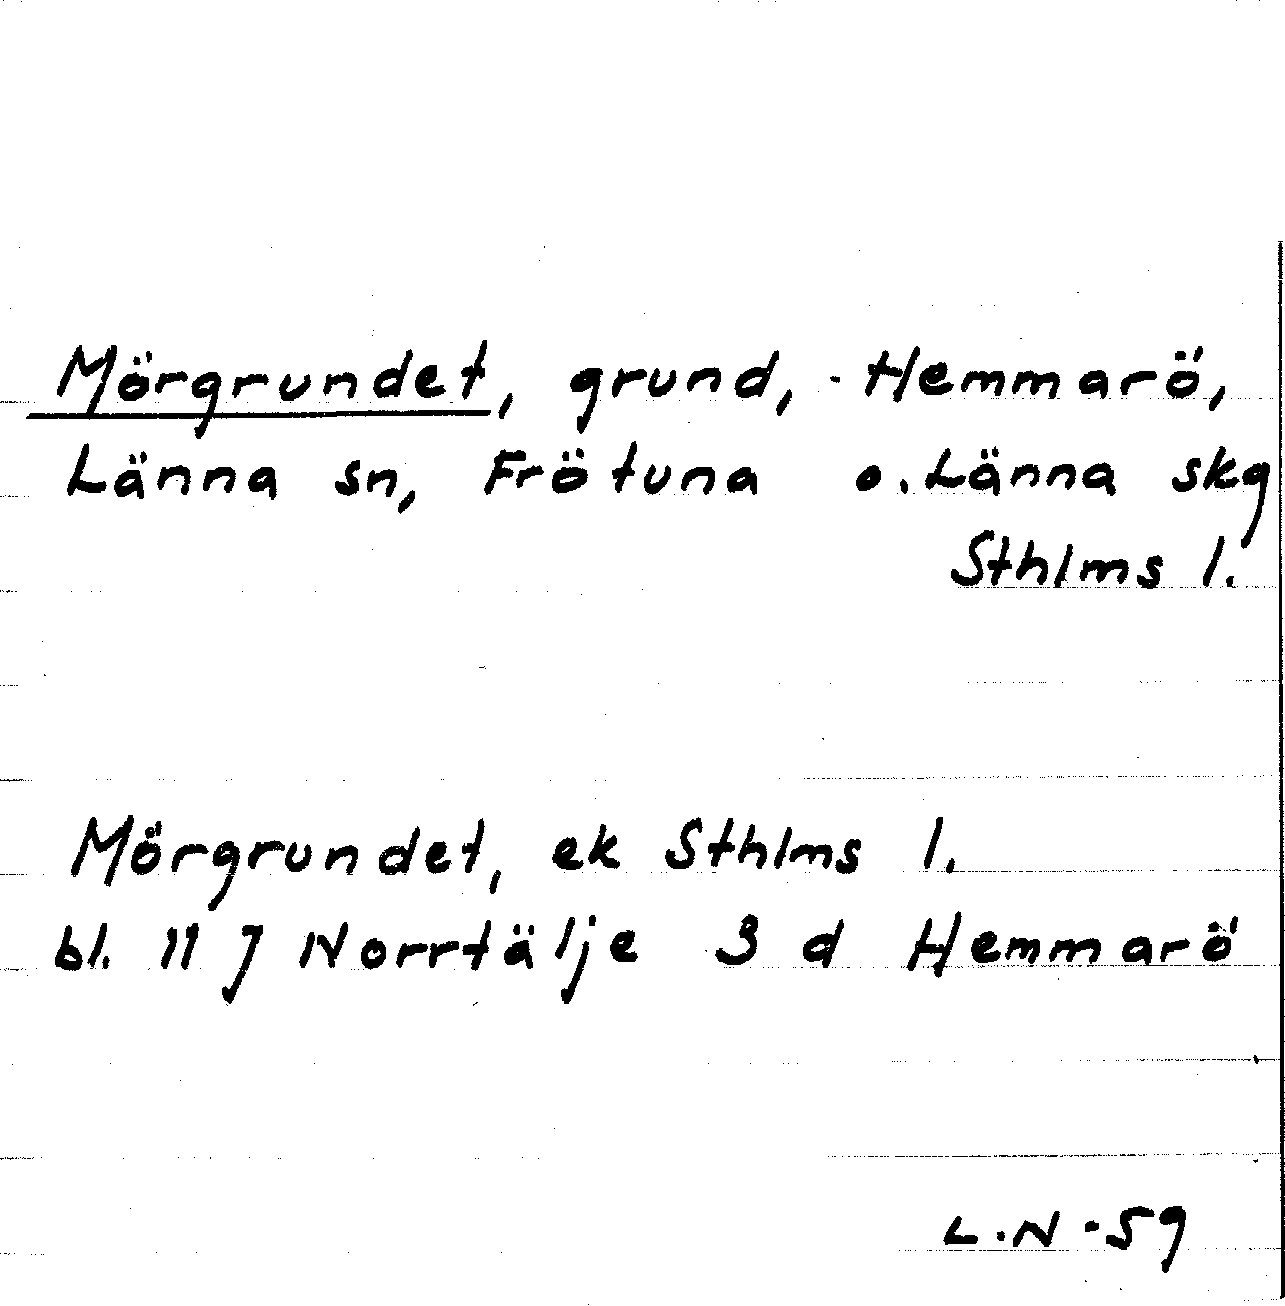 Mörgrundet, grund, Hemmarö,
Länna sn, Frötuna o. Länna skg
Sthlms l.
Mörgrundet, ek Sthlms l.
bl. 11 J Norrtälje 3 d Hemmarö
L.N -59